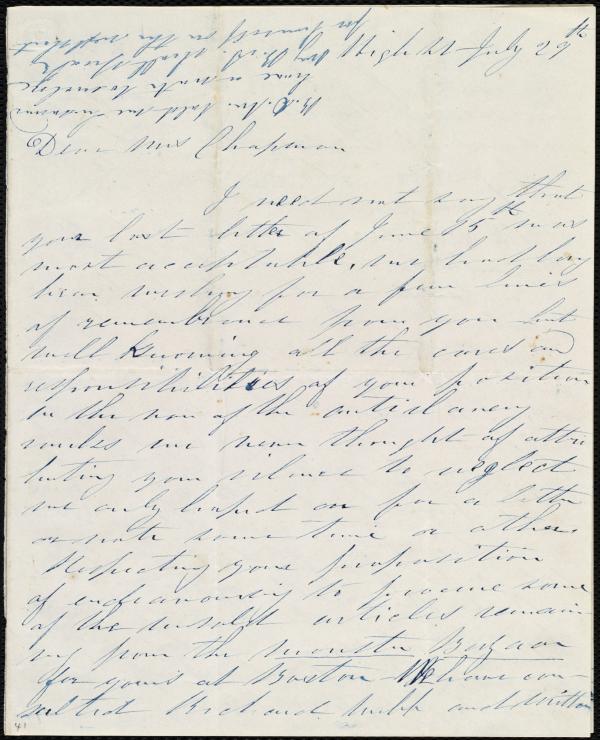 High St July 29th
Dear Mrs Chapman
I need not say that
your last letter of June 15th was
most acceptable, we had long
been wishing for a few lines
of remembrance from you but
well knowing all the cares and
responsibilities of your position
in the van of the antislavery
ranks we never thought of attri
buting your silence to neglect
we only hoped on for a letter
or note some time or other
Respecting your proposition
of endeavouring to procure some
of the unsold articles remain
ing from the monster Bazaar
for yours at Boston - We have con
sulted Richard Webb and written
41